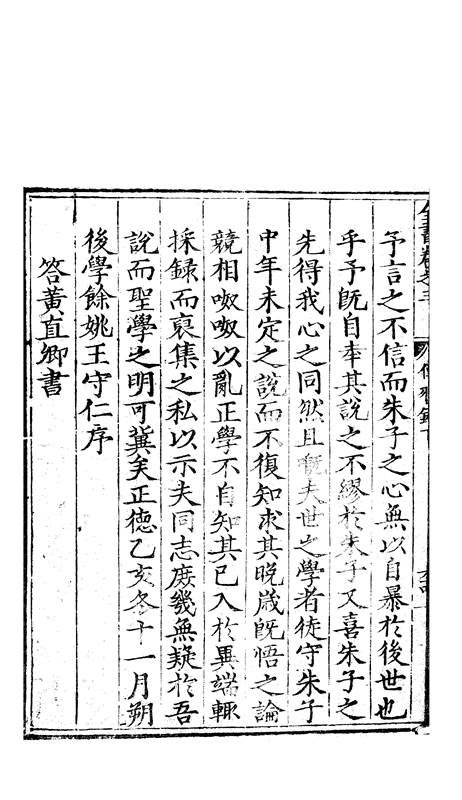 予言之不信而朱子之心無以自暴於後世也
乎予既自幸其說之不繆於朱子又喜朱子之
先得我心之同然且慨夫世之學者徒守朱子
中年未定之說而不復知求其晚歲既悟之論
競相呶呶以亂正學不自知其已入於異端輒
採録而裒集之私以示夫同志庶幾無疑於吾
說而聖學之明可冀矣正德乙亥冬十一月朔
後學餘姚王守仁序
答黄直卿書